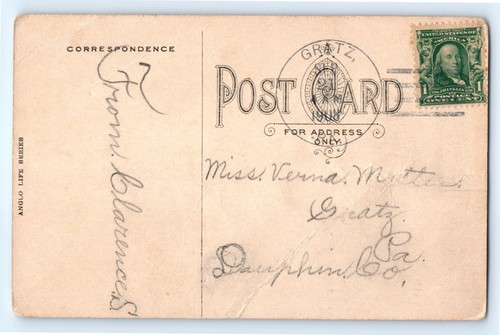 CORRESPONDENCE
From. Clarence E.
ANGLO LIFE SERIES
GRATZ,
1908
POST CARD
FOR ADDRESS
ONLY.
UNITED STATES OF
AMERICA
1 POSTAGE 1
ONE CENT
Miss. Verna.
Gratz.
Pa.
Dauphin. Co.